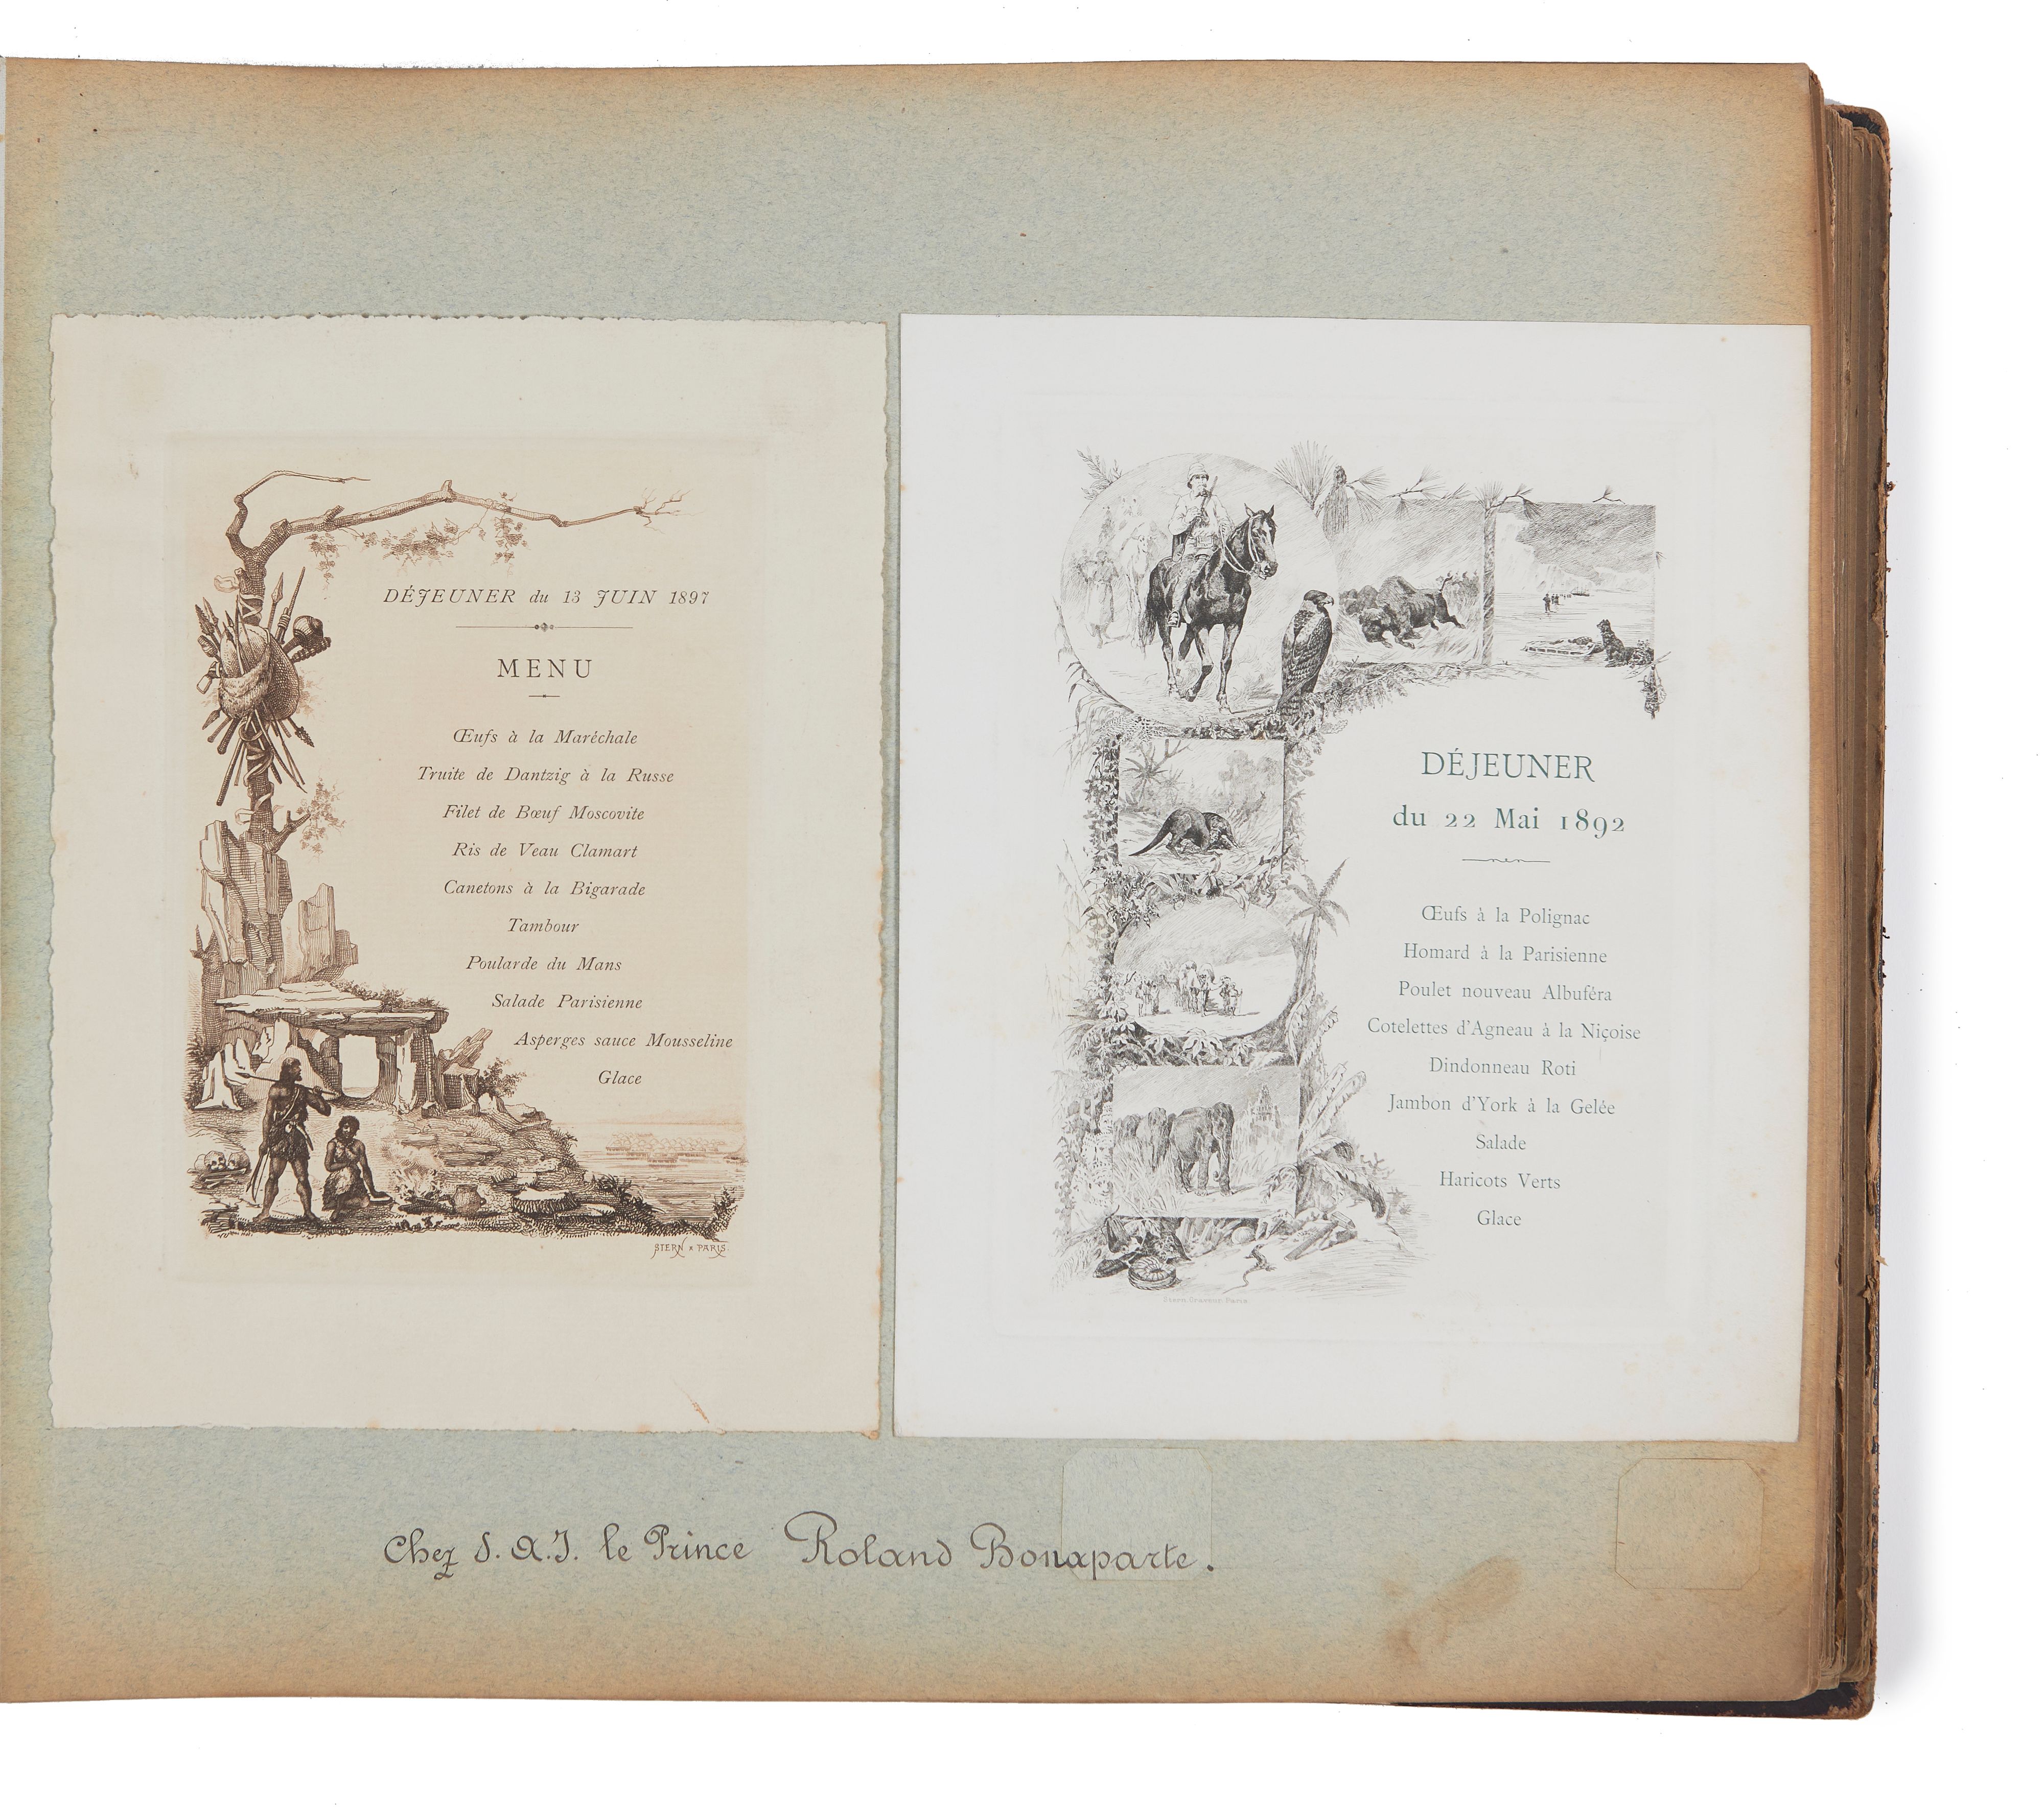 DÉJEUNER du 13 JUIN 1897
MENU
Œufs à la Maréchale
Truite de Dantzig à la Russe
Filet de Bœuf Moscovite
Ris de Veau Clamart
Canetons à la Bigarade
Tambour
Poularde du Mans
Salade Parisienne
Asperges sauce Mousseline
Glace
STERN x PARIS.
DÉJEUNER
du 22 Mai 1892
Œufs à la Polignac
Homard à la Parisienne
Poulet nouveau Albuféra
Cotelettes d'Agneau à la Niçoise
Dindonneau Roti
Jambon d'York à la Gelée
Salade
Haricots Verts
Glace
Stern Graveur Paris
Chez S. A. I. le Prince Roland Bonaparte.